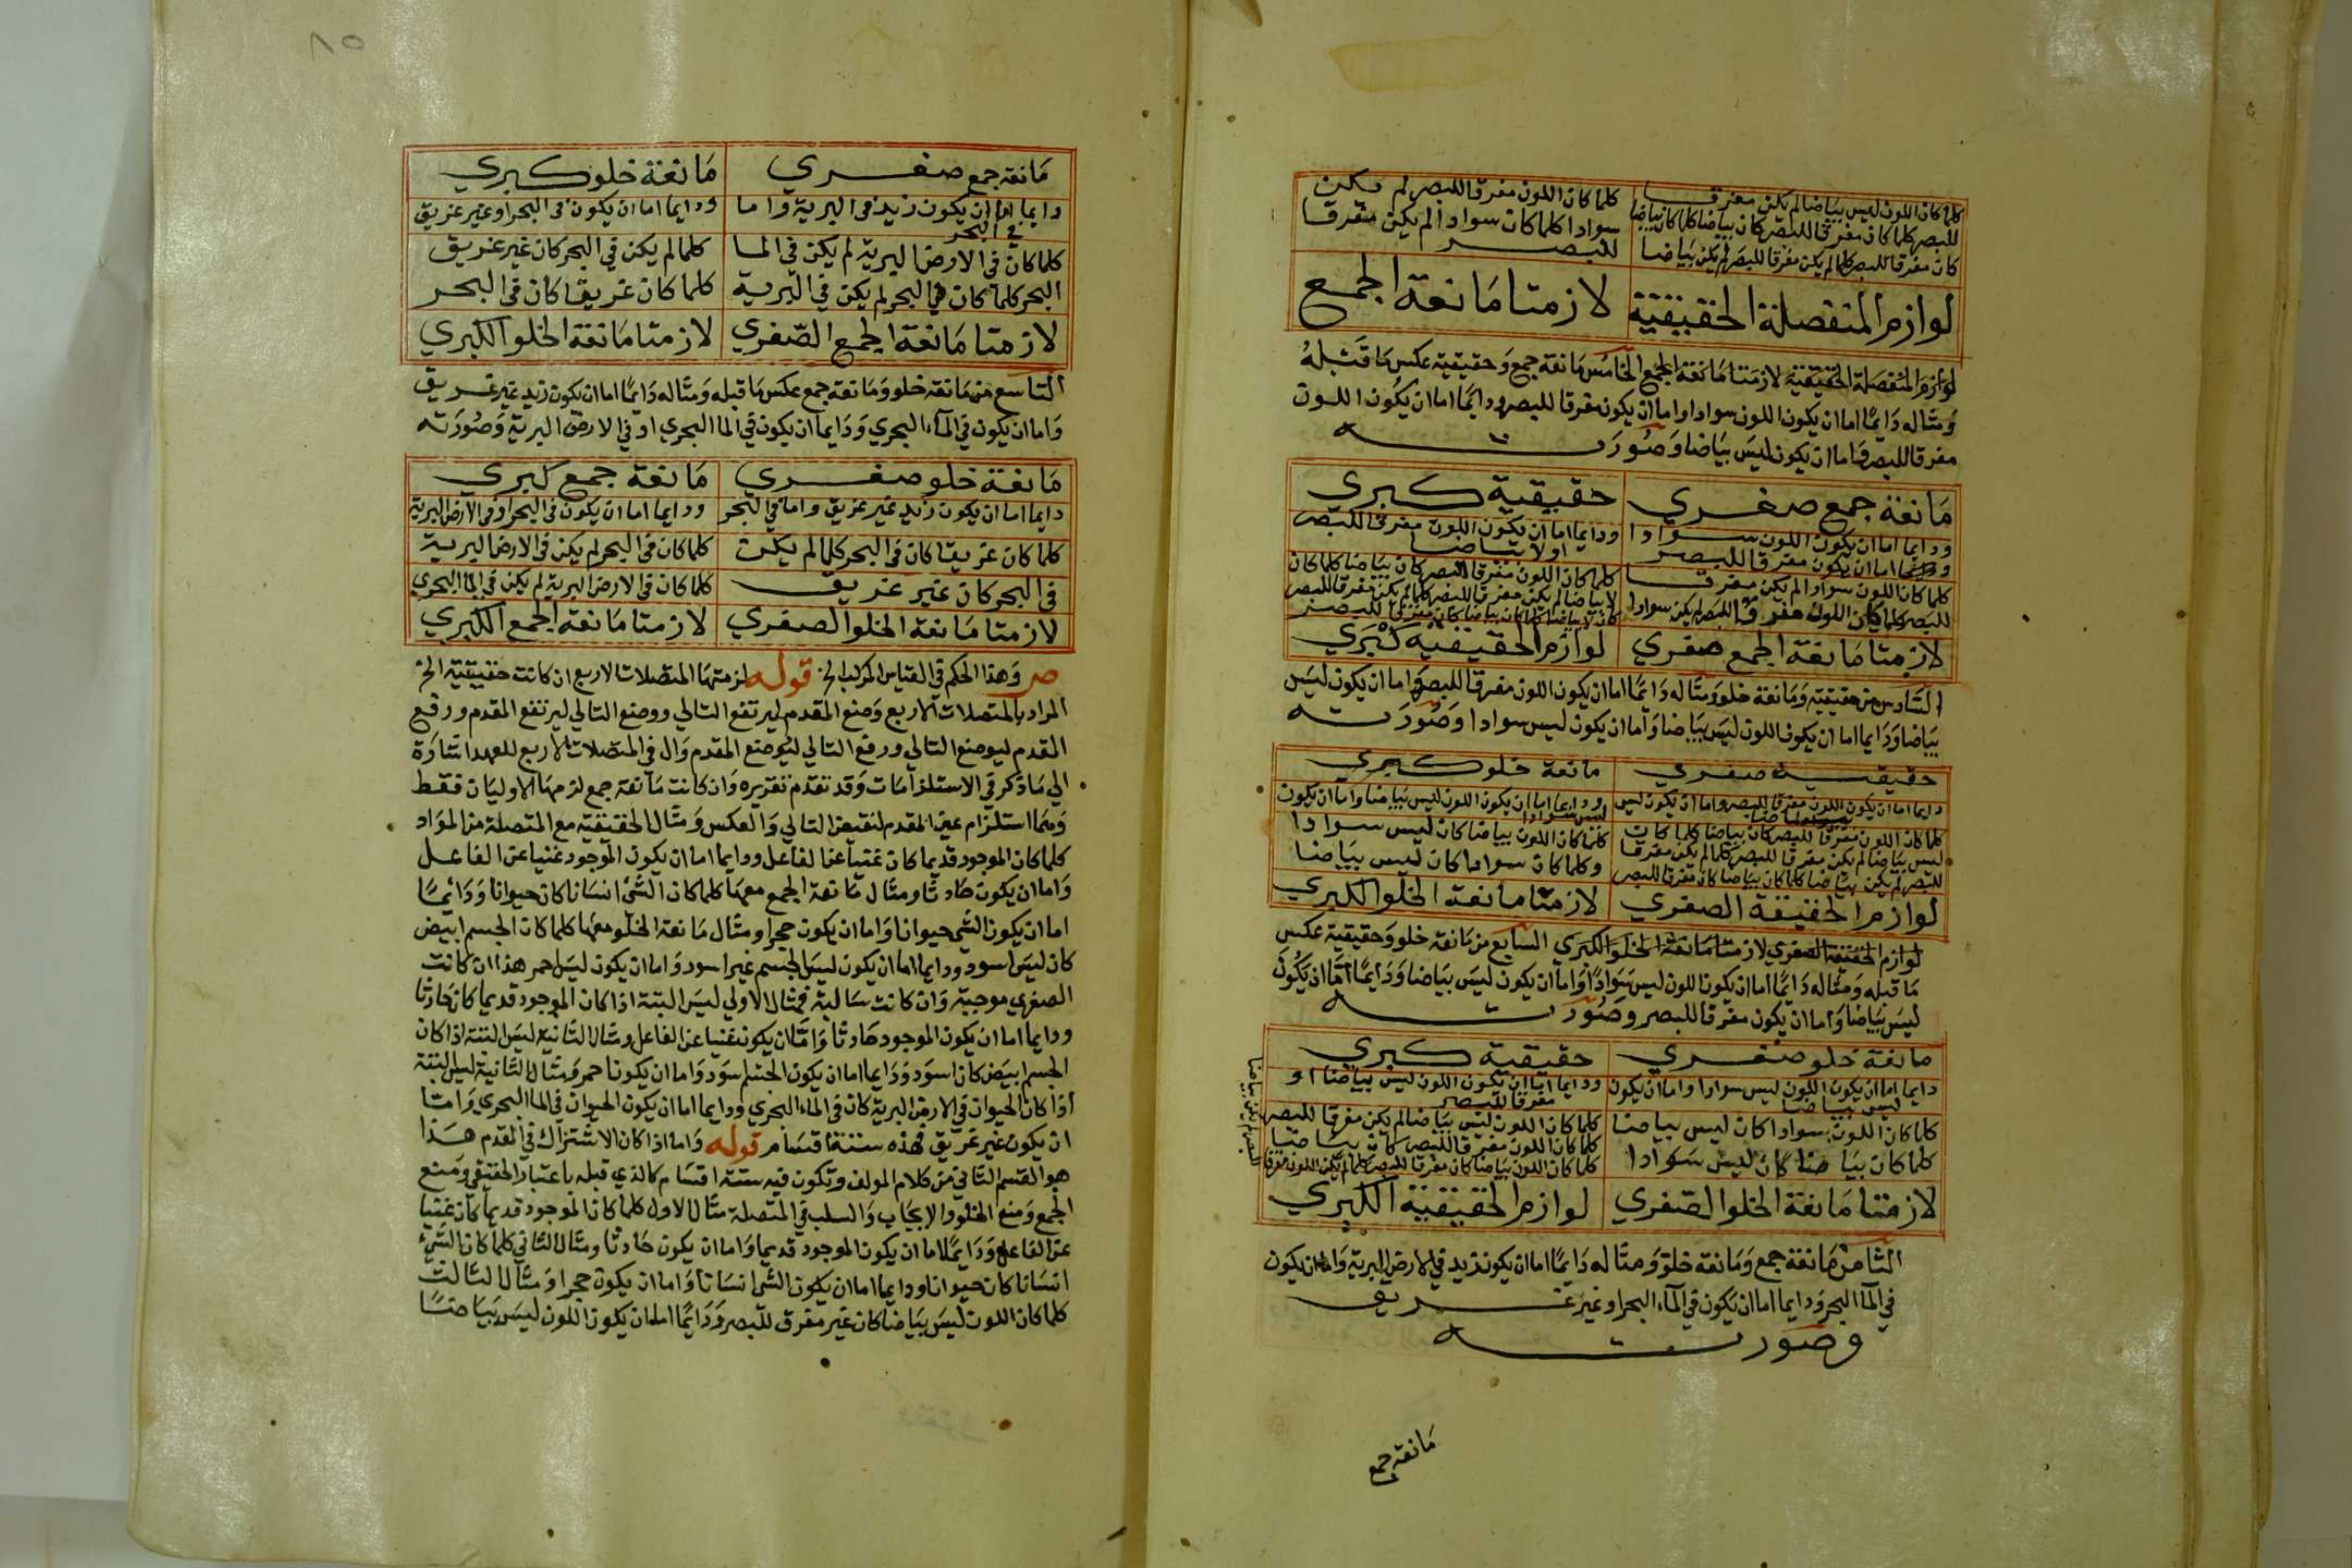 كلما كان اللون ليس بياضا لم يكن مفرقا
للبصر كلما كان مفرقا للبصر كان بياضا كلما كان بياضا
كان مفرقا للبصر كلما لم يكن مفرقا للبصر لم يكن بياضا
كلما كان اللون مفرقا للبصر لم يكن
سوادا كلما كان سوادا لم يكن مفرقا
للبصر
لوازم المنفصلة الحقيقية
لازمتا مانعة الجمع
لوازم المنفصلة الحقيقية لازمتا مانعة الجمع الخامس مانعة جمع وحقيقية عكس ما قبله
ومثاله دايما اما ان يكون اللون سوادا او اما ان يكون مفرقا للبصر ودايما اما ان يكون اللون
مفرقا للبصر واما ان يكون ليس بياضا وصورته
مانعة جمع صغري
حقيقية كبري
ودايما اما ان يكون اللون سوادا
اما ان يكون مفرقا للبصر
ودايما اما ان يكون اللون مفرقا للبصر
او لا بياضا
كلما كان اللون سوادا لم يكن مفرقا
للبصر كلما كان اللون مفرقا للبصر لم يكن سوادا
كلما كان اللون مفرقا للبصر كان بياضا كلما كان
لا بياضا لم يكن مفرقا للبصر كلما لم يكن مفرقا للبصر
كان لا بياضا كلما كان بياضا كان مفرقا للبصر
لازمتا مانعة الجمع صغري
لوازم الحقيقية كبري
السادس من حقيقية ومانعة خلو ومثاله دايما اما ان يكون اللون مفرقا للبصر واما ان يكون ليس
بياضا ودايما اما ان يكون اللون ليس بياضا واما ان يكون ليس سوادا وصورته
حقيقية صغري
مانعة خلو كبري
دايما اما ان يكون اللون مفرقا للبصر واما ان يكون ليس
ودايما اما ان يكون اللون ليس بياضا واما ان يكون
ليس سوادا
كلما كان اللون مفرقا للبصر كان بياضا كلما كان
ليس بياضا لم يكن مفرقا للبصر كلما لم يكن مفرقا
للبصر لم يكن بياضا كلما كان بياضا كان مفرقا للبصر
كلما كان اللون بياضا كان ليس سوادا
وكلما كان سوادا كان ليس بياضا
لوازم الحقيقة الصغري
لازمتا مانعة الخلو الكبري
لوازم الحقيقة الصغري لازمتا مانعة الخلو الكبري السابع من مانعة خلو وحقيقية عكس
ما قبله ومثاله دايما اما ان يكون اللون ليس سوادا واما ان يكون ليس بياضا ودايما اما ان يكون
ليس بياضا واما ان يكون مفرقا للبصر وصورته
مانعة خلو صغري
حقيقية كبري
دايما اما ان يكون اللون ليس سوادا واما ان يكون
ليس بياضا
ودايما اما ان يكون اللون ليس بياضا او
مفرقا للبصر
كلما كان اللون سوادا كان ليس بياضا
كلما كان بياضا كان ليس سوادا
كلما كان اللون ليس بياضا لم يكن مفرقا للبصر
كلما كان اللون مفرقا للبصر كان بياضا
كلما كان اللون بياضا كان مفرقا للبصر كلما لم يكن اللون مفرقا
لازمتا مانعة الخلو الصغري
لوازم الحقيقية الكبري
الثامن مانعة جمع ومانعة خلو ومثاله دايما اما ان يكون زيد في الارض البرية واما ان يكون
في الماء البحر ودايما اما ان يكون في الماء البحر او غير غريق
وصورته
مانعة جمع
٨٥
مانعة جمع صغري
مانعة خلو كبري
دايما اما ان يكون زيد في البرية واما
في البحر
ودايما اما ان يكون في البحر او غير غريق
كلما كان في الارض البرية لم يكن في الما
كلما لم يكن في البحر كان غير غريق
البحر كلما كان في البحر لم يكن في البرية
كلما كان غريقا كان في البحر
لازمتا مانعة الجمع الصغري
لازمتا مانعة الخلو الكبري
التاسع من مانعة خلو ومانعة جمع عكس ما قبله ومثاله دايما اما ان يكون زيد غير غريق
واما ان يكون في الماء البحري ودايما ان يكون في الما البحري او في الارض البرية وصورته
مانعة خلو صغري
مانعة جمع كبري
دايما اما ان يكون زيد غير غريق واما في البحر
ودايما اما ان يكون في البحر او في الارض البرية
كلما كان غريقا كان في البحر كلما لم يكن
كلما كان في البحر لم يكن في الارض البرية
في البحر كان غير غريق
كلما كان في الارض البرية لم يكن في الما البحري
لازمتا مانعة الخلو الصغري
لازمتا مانعة الجمع الكبري
ص وهذا الحكم في القياس المركب الخ قوله لزمتها المتصلات الاربع ان كانت حقيقية الخ
المراد بالمتصلات الاربع وضع المقدم ليرتفع التالي ووضع التالي ليرتفع المقدم ورفع
المقدم ليوضع التالي ورفع التالي ليوضع المقدم وال في المتصلات الاربع للعهد اشارة
الي ما ذكر في الاستلزامات وقد تقدم تقريره وان كانت مانعة جمع لزمها الاوليان فقط
وهما استلزام عين المقدم لنقيض التالي والعكس ومثال الحقيقية مع المتصلة من المواد
كلما كان الموجود قديما كان غنيا عن الفاعل ودايما اما ان يكون الموجود غنيا عن الفاعل
واما ان يكون حادثا ومثال مانعة الجمع معها كلما كان الشئ انسانا كان حيوانا ودائما
اما ان يكون الشي حيوانا واما ان يكون حجرا ومثال مانعة الخلو معها كلما كان الجسم ابيض
كان ليس اسود ودايما اما ان يكون ليس الجسم غير اسود واما ان يكون ليس احمر هذا ان كانت
الصغري موجبة وان كانت سالبة فمثال الاولي ليس البتة اذا كان الموجود قديما كان حادثا
ودايما اما ان يكون الموجود حادثا واما ان يكون غنيا عن الفاعل ومثال الثانية ليس البتة اذا كان
الجسم ابيض كان اسود ودايما اما ان يكون الجسم اسود واما ان يكون احمر ومثال الثانية ليس البتة
اذا كان الحيوان في الارض البرية كان في الماء البحري ودايما اما ان يكون الحيوان في الما البحري واما
ان يكون غير غريق فهذه ستة اقسام قوله واما اذا كان الاشتراك في المقدم هذا
هو القسم الثاني من كلام المولف وتكون فيه ستة اقسام كالذي قبله باعتبار الحقيقي ومنع
الجمع ومنع الخلو والايجاب والسلب في المتصلة مثال الاول كلما كان الموجود قديما كان غنيا
عن الفاعل ودايما اما ان يكون الموجود قديما واما ان يكون حادثا ومثال الثاني كلما كان الشئ
انسانا كان حيوانا ودايما اما ان يكون الشئ انسانا واما ان يكون حجرا ومثال الثالث
كلما كان اللون ليس بياضا كان غير مفرق للبصر ودايما اما ان يكون اللون ليس بياضا